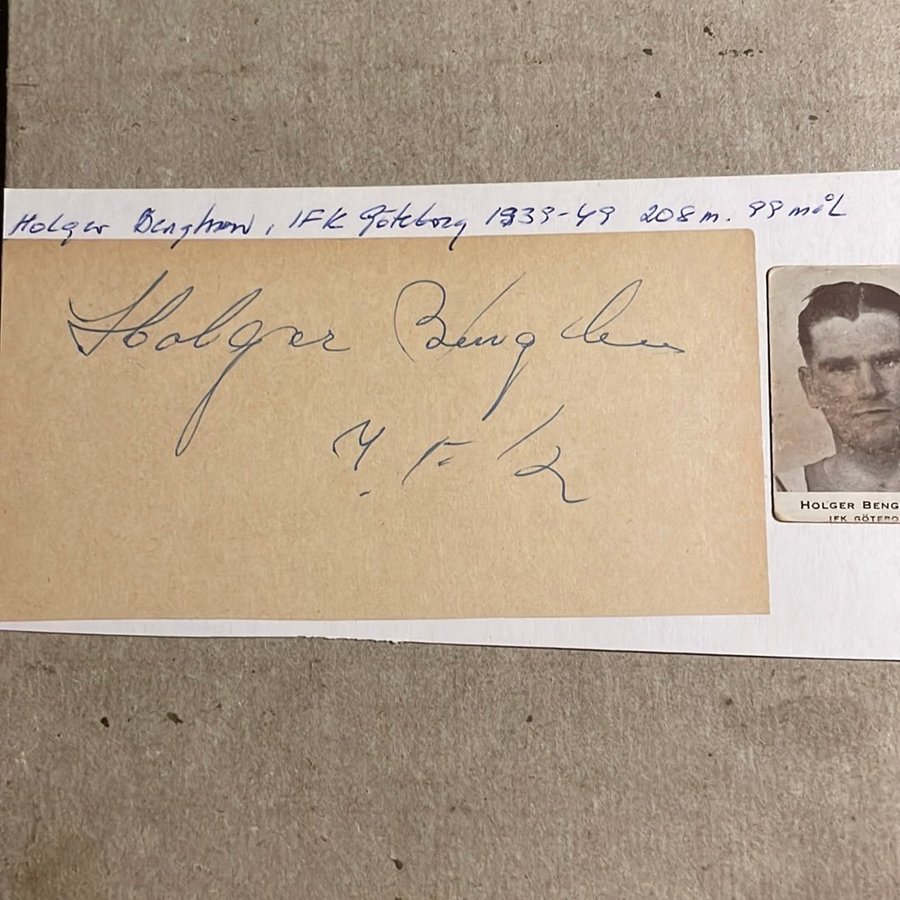 Holger Bengtsson, IFK Göteborg 1939-49 208 m. 99 mål
Holger Bengtsson
I. F. K
HOLGER BENG
IFK GÖTEBO